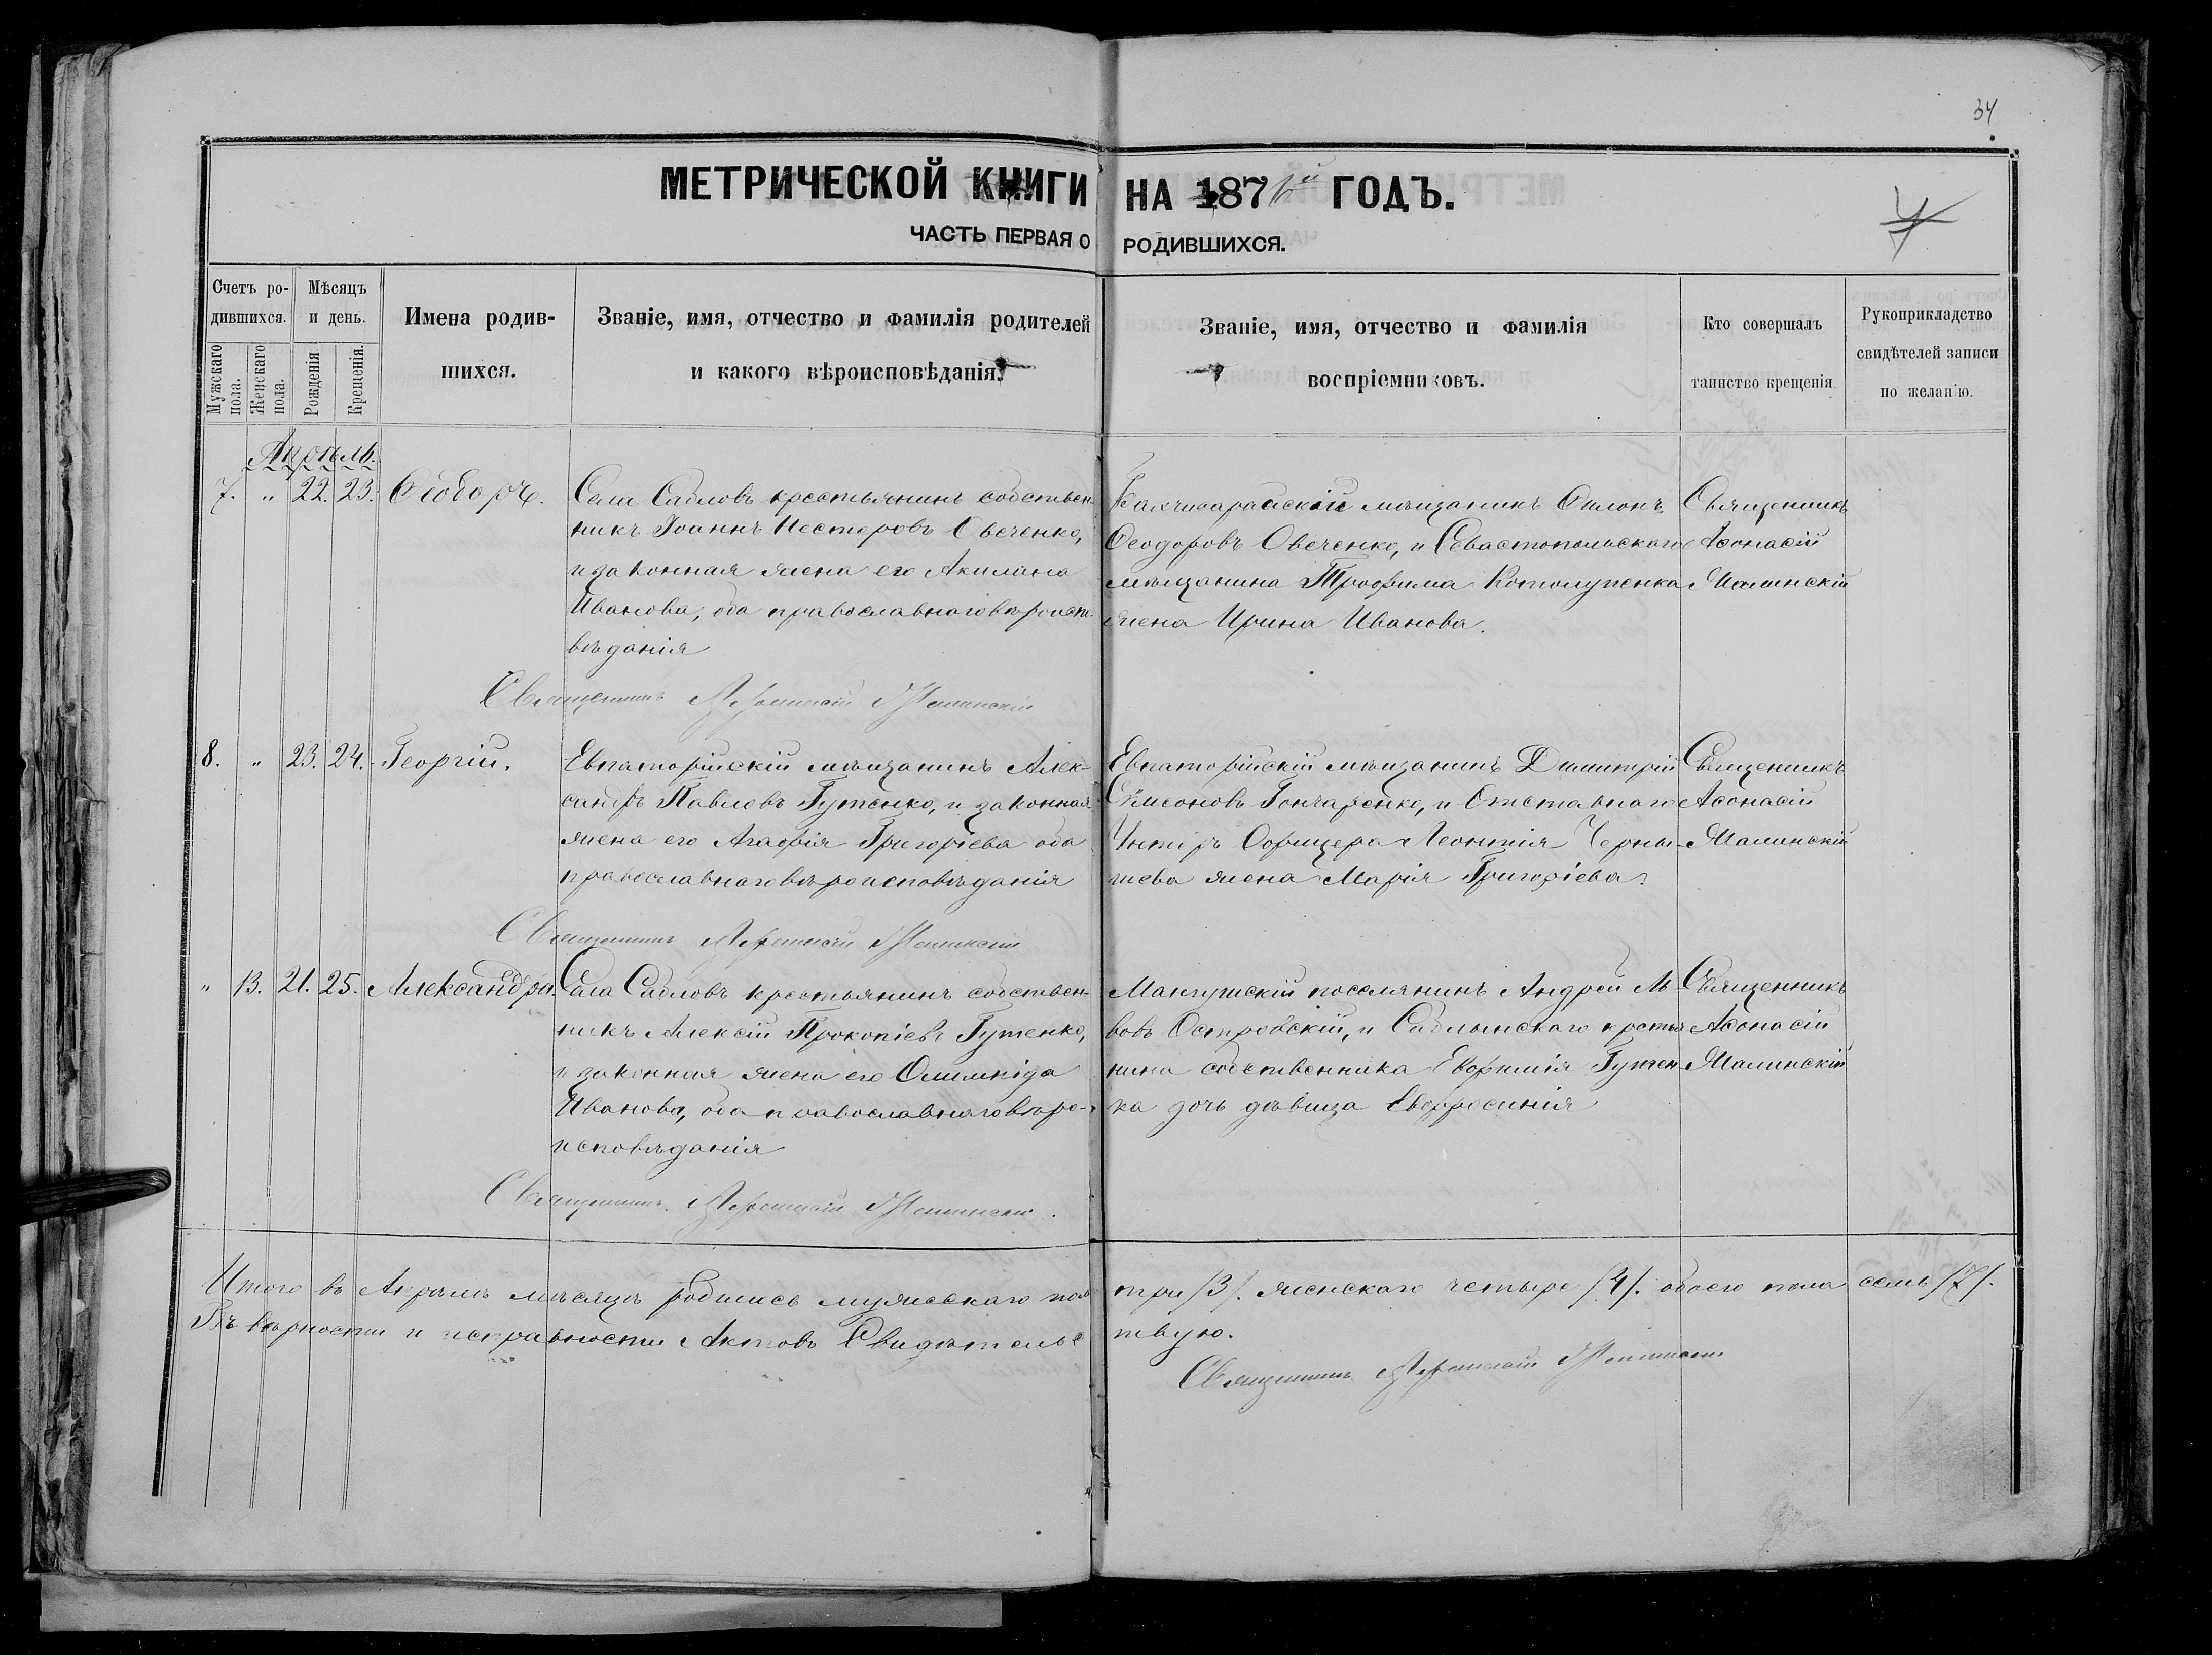 34
МЕТРИЧЕСКОЙ КНИГИ НА 1876й ГОДЪ.
ЧАСТЬ ПЕРВАЯ О РОДИВШИХСЯ.
Счетъ родившихся.
Мужскаго пола.
Женскаго пола.
Мѣсяцъ и день.
Рожденія
Крещенія.
Имена родив-
шихся.
Званіе, имя, отчество и фамилія родителей
и какого вѣроисповѣданія.
Званіе, имя, отчество и фамилія
воспріемниковъ.
Кто совершалъ
таинство крещенія.
Рукоприкладство
свидѣтелей записи
по желанію.
Апрѣль.
7. " 22. 23. Ѳеодоръ.
Села Сабловъ крестьянинъ собствен-
никъ Іоаннъ Нестеровъ Овеченко,
и законная жена его Акилина
Иванова, оба православнаго вѣроиспо-
вѣданія
Бахчисарайскій мѣщанинъ
Ѳеодоровъ Овеченко, и Севастопольскаго
мѣщанина Трофима Котолупенка
жена Ирина Иванова.
Священникъ
Аѳонасій
Малинскій
Священникъ Аѳонасій Малинскій
8. " 23. 24. Георгій.
Евпаторійскій мѣщанинъ Алек-
сандръ Павловъ Гутенко, и законная
жена его Агафія Григорьева оба
православнаго вѣроисповѣданія
Евпаторійскій мѣщанинъ Димитрій
Гончаренко, и Отставнаго
Унтеръ Офицера Леонтія Черны-
шева жена Марія Григоріева.
Священникъ
Аѳонасій
Малинскій
Священникъ Аѳонасій Малинскій
" 13. 21. 25. Александра.
Села Сабловъ крестьянинъ собствен-
никъ Алексій Прокопіевъ Гутенко,
и законная жена его Олимпіда
Иванова, оба православнаго вѣро-
исповѣданія
Мангушскій поселянинъ Андрей Ль-
вовъ Островскій, и Саблынскаго крестья
нина собственника Евфимія Гутен-
ка дочь дѣвица Евфросинія
Священникъ
Аѳонасій
Малинскій
Священникъ Аѳонасій Малинскій.
Итого въ Апрѣлѣ мѣсяцѣ родилось мужескаго пола три /3/. женскаго четыре /4/. обоего пола семь /7/.
Въ вѣрности и исправности Актовъ Свидѣтельствую.
Священникъ Аѳонасій Малинскій